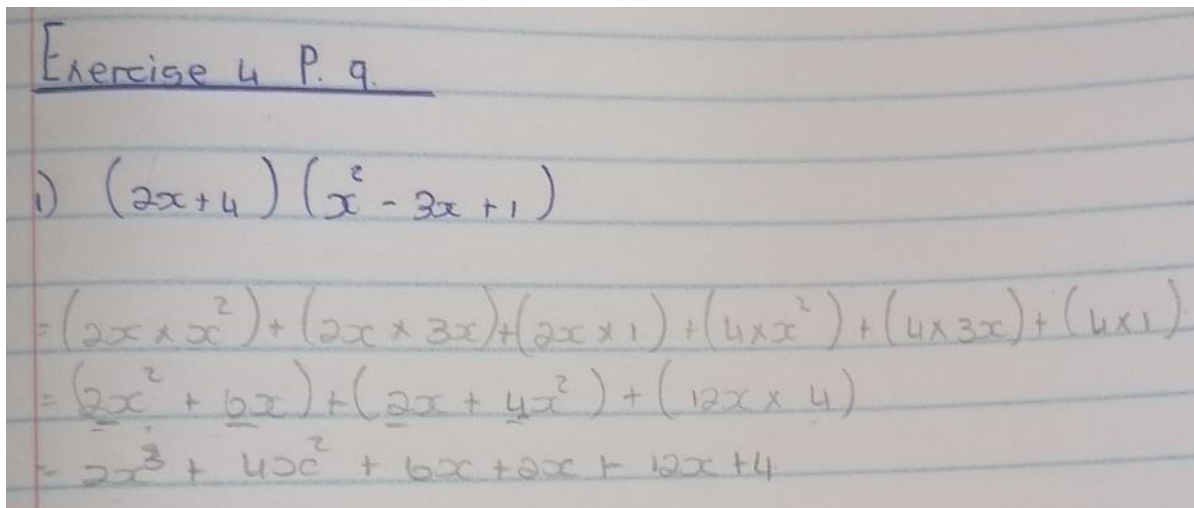 Exercise 4 P. 9.
1) (2x+4) (x² - 3x + 1)
= (2x × x²) + (2x × 3x) + (2x × 1) + (4 × x²) + (4 × 3x) + (4 × 1)
= (2x² + 6x) + (2x + 4x²) + (12x × 4)
= 2x³ + 4x² + 6x + 2x + 12x + 4